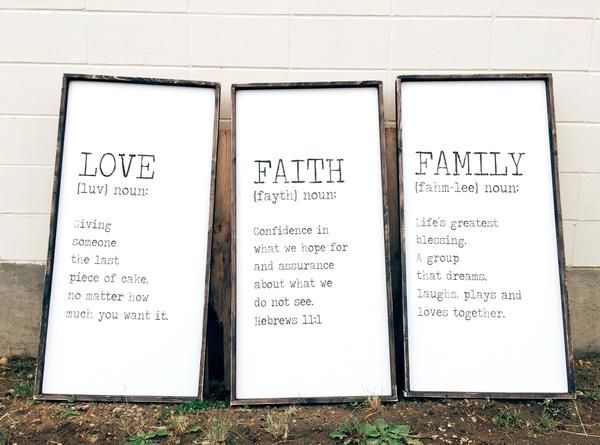 LOVE
{luv} noun:
Giving
someone
the last
piece of cake,
no matter how
much you want it.
FAITH
{fayth} noun:
Confidence in
what we hope for
and assurance
about what we
do not see.
Hebrews 11:1
FAMILY
{fahm-lee} noun:
Life's greatest
blessing.
A group
that dreams,
laughs, plays and
loves together.